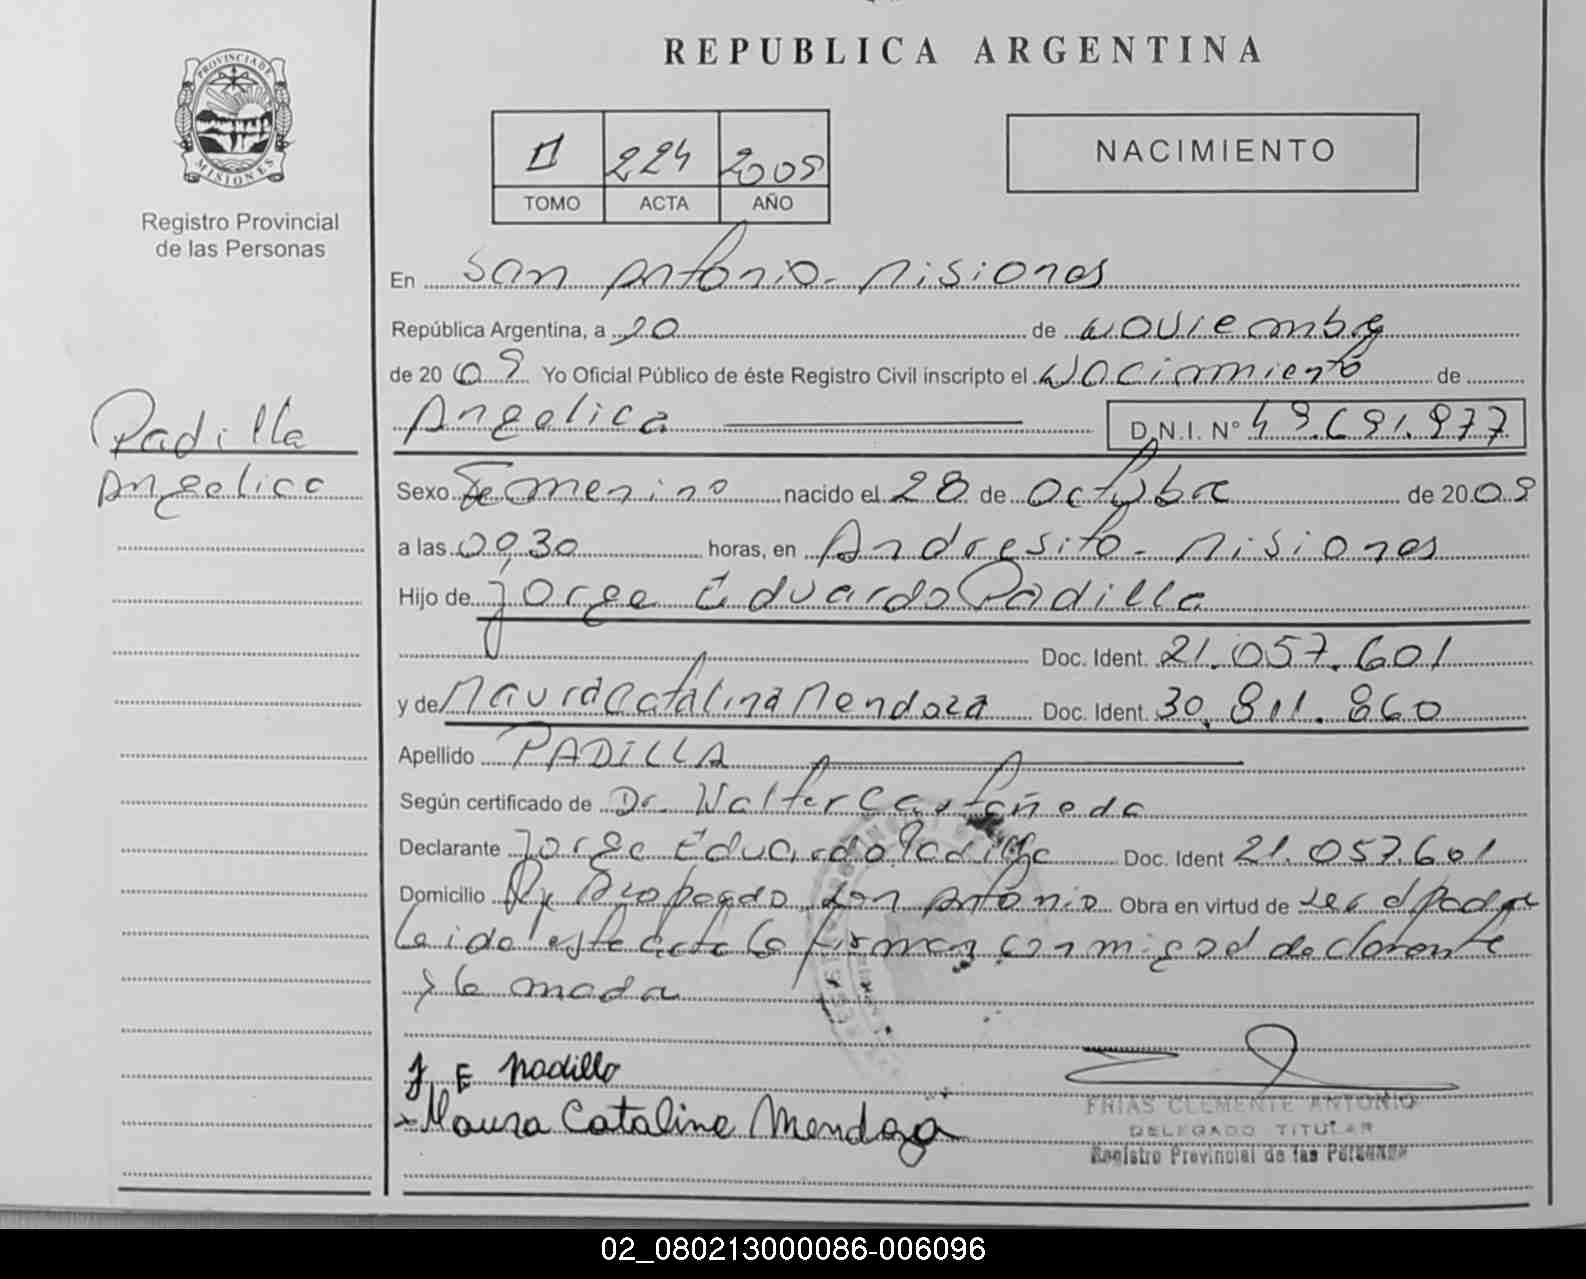 REPUBLICA ARGENTINA
PROVINCIA DE
MISIONES
Registro Provincial
de las Personas
II 224 2009
TOMO ACTA AÑO
NACIMIENTO
En San Antonio - Misiones
República Argentina, a 20 de Noviembre
de 20 09 Yo Oficial Público de éste Registro Civil inscripto el Nacimiento de
Angelica D.N.I. N° 49.691.977
Padilla
Angelica
Sexo Femenino nacido el 28 de Octubre de 20 09
a las 09,30 horas, en Andresito - Misiones
Hijo de Jorge Eduardo Padilla
Doc. Ident. 21.057.601
y de Maura Catalina Mendoza Doc. Ident. 30.811.860
Apellido PADILLA
Según certificado de Dr. Walter Castañeda
Declarante Jorge Eduardo Padilla Doc. Ident 21.057.601
Domicilio San Antonio Obra en virtud de ser el padre
Leido este acta la firman conmigo el declarante
y la madre
J E Padilla
Maura Catalina Mendoza
FRIAS CLEMENTE ANTONIO
DELEGADO TITULAR
Registro Provincial de las Personas
02_080213000086-006096